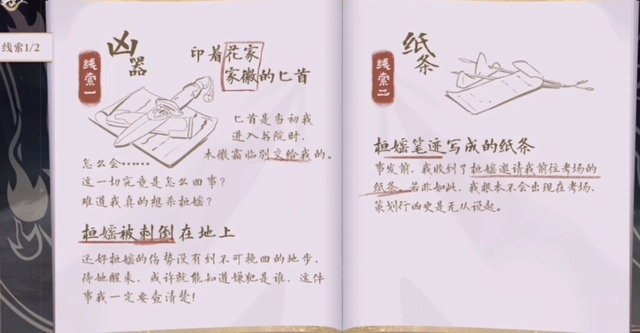 线索1/2
凶器
线索一
印着花家
家徽的匕首
匕首是当初我
进入书院时,
木微霜临别交给我的。
怎么会……
这一切究竟是怎么回事?
难道我真的想杀桓媱?
桓媱被刺倒在地上
还好桓媱的伤势没有到不可挽回的地步,
待她醒来,或许就能知道嫌犯是谁,这件
事我一定要查清楚!
纸条
线索二
桓媱笔迹写成的纸条
事发前,我收到了桓媱邀请我前往考场的
纸条。若非如此,我根本不会出现在考场,
策划行凶更是无从谈起。